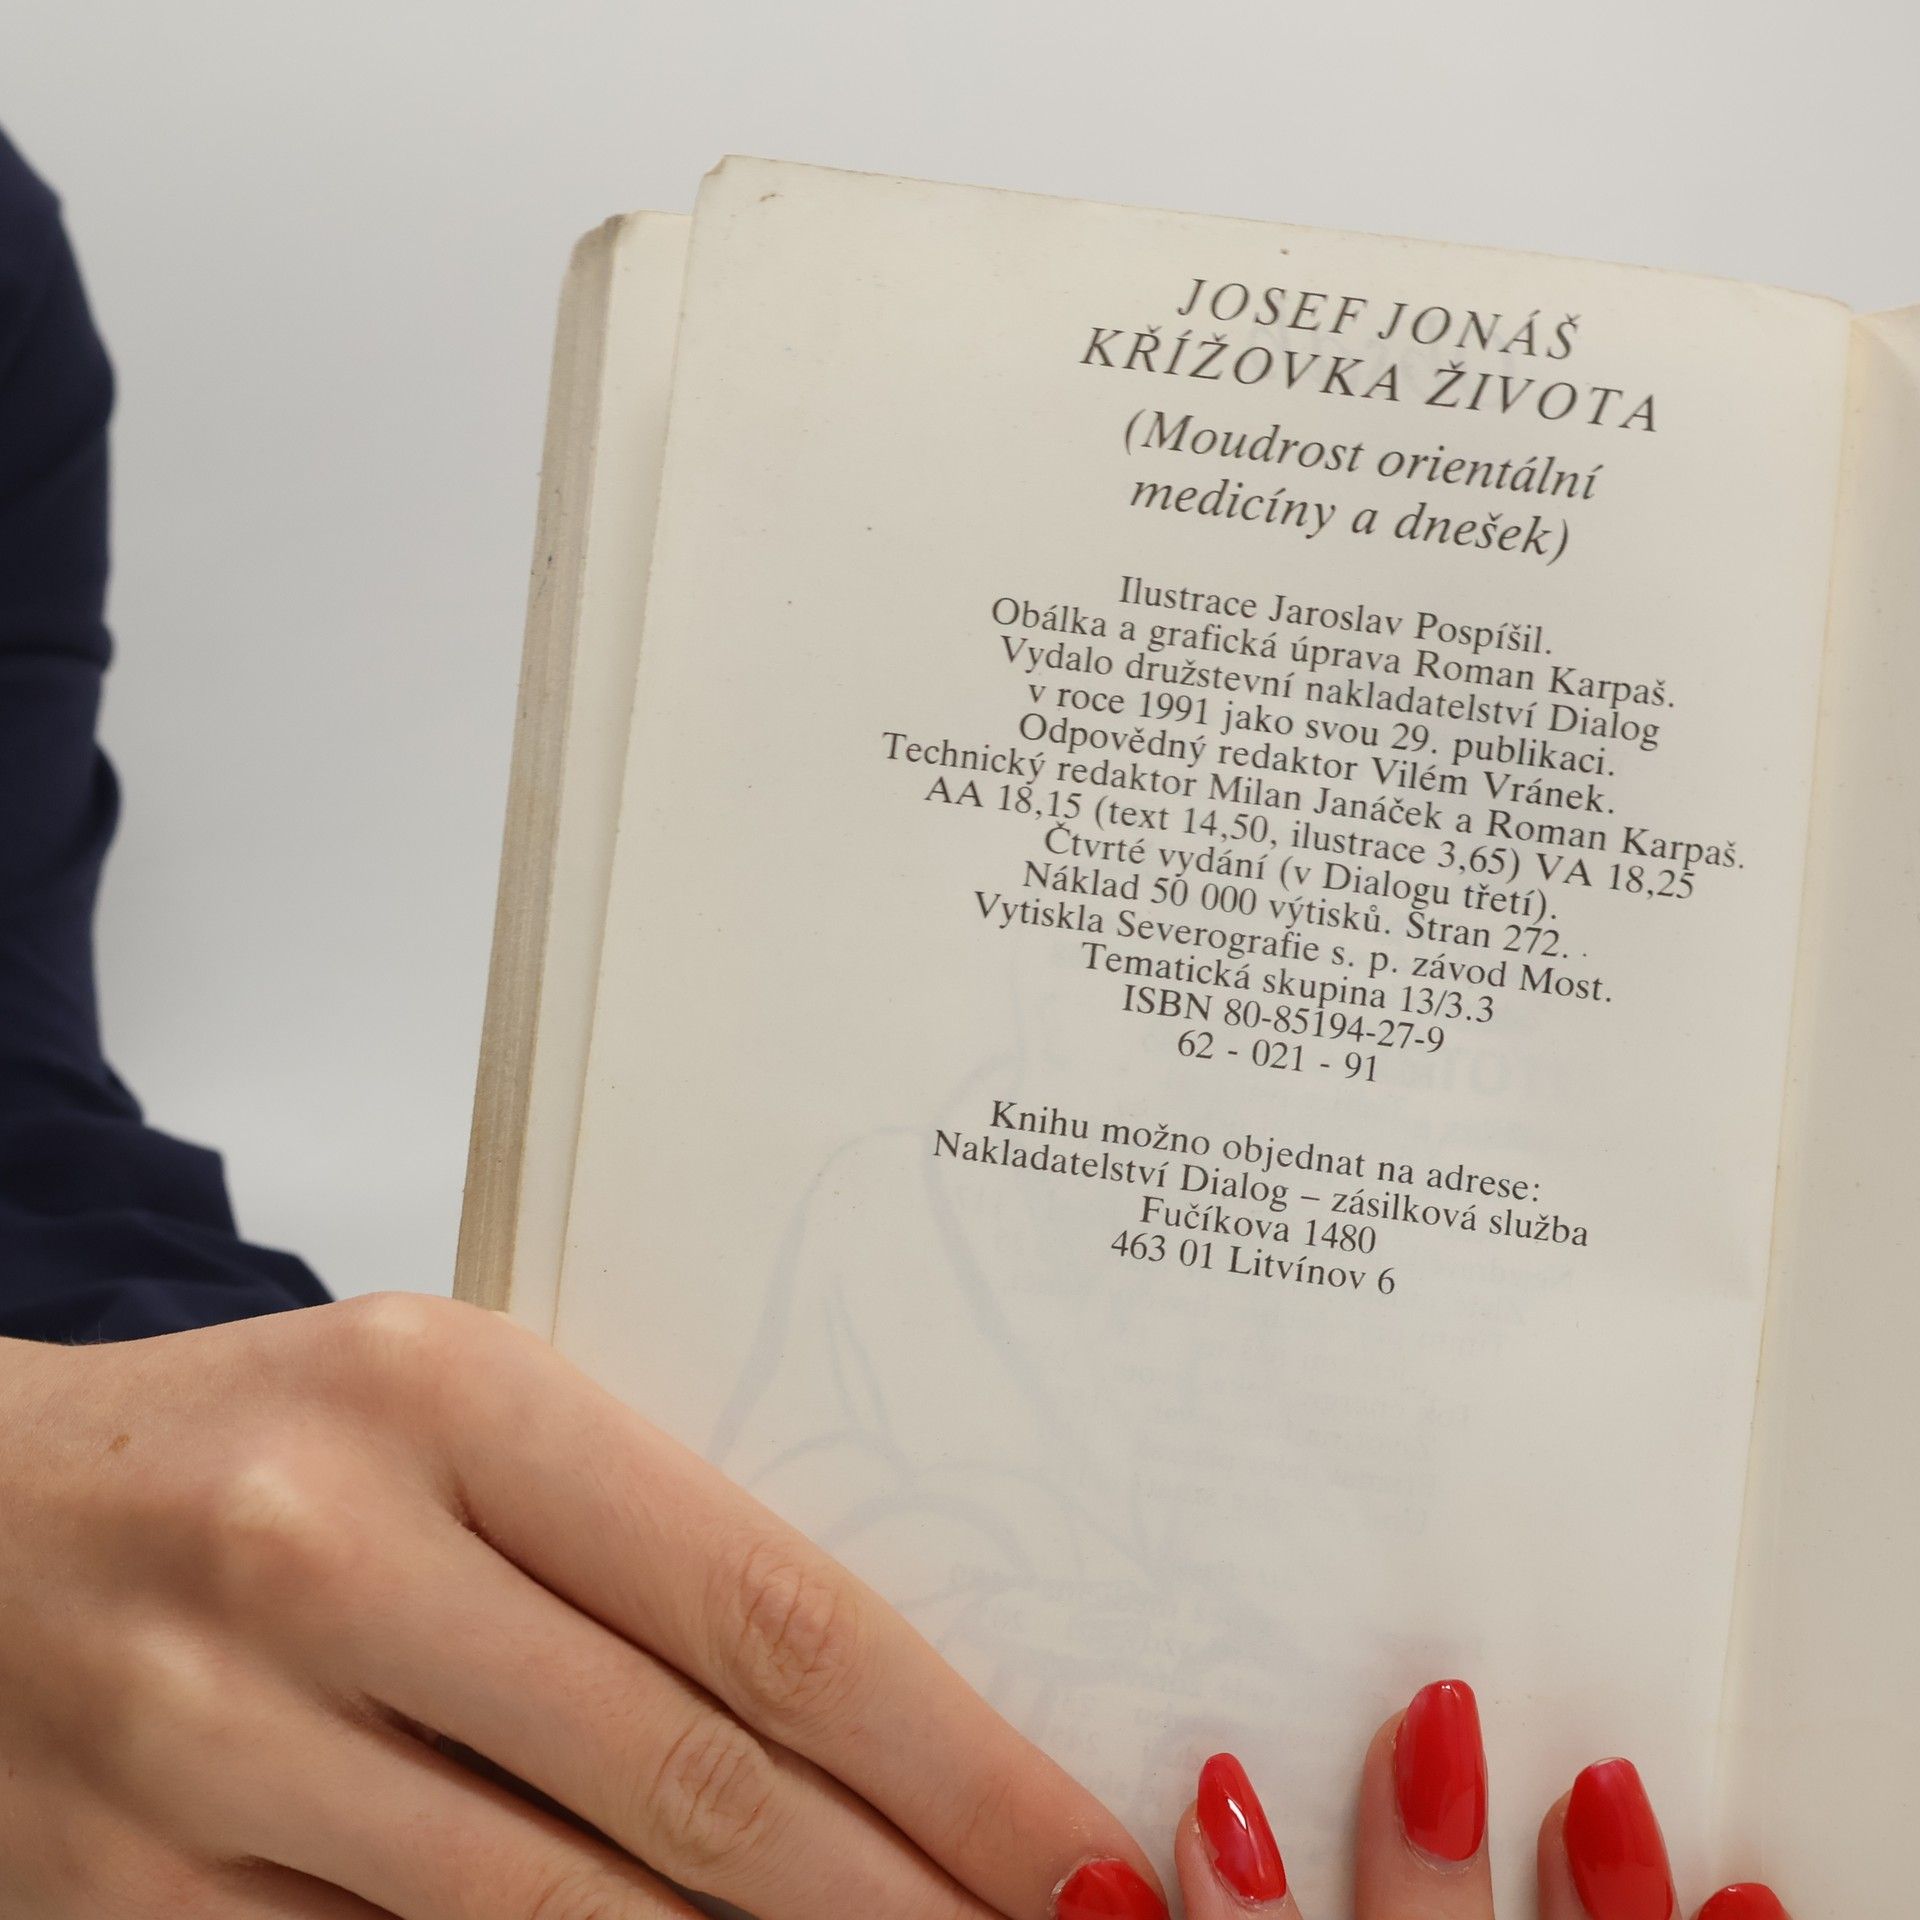 JOSEF JONÁŠ
KŘÍŽOVKA ŽIVOTA
(Moudrost orientální
medicíny a dnešek)
Ilustrace Jaroslav Pospíšil.
Obálka a grafická úprava Roman Karpaš.
Vydalo družstevní nakladatelství Dialog
v roce 1991 jako svou 29. publikaci.
Odpovědný redaktor Vilém Vránek.
Technický redaktor Milan Janáček a Roman Karpaš.
AA 18,15 (text 14,50, ilustrace 3,65) VA 18,25
Čtvrté vydání (v Dialogu třetí).
Náklad 50 000 výtisků. Stran 272.
Vytiskla Severografie s. p. závod Most.
Tematická skupina 13/3.3
ISBN 80-85194-27-9
62 - 021 - 91
Knihu možno objednat na adrese:
Nakladatelství Dialog – zásilková služba
Fučíkova 1480
463 01 Litvínov 6